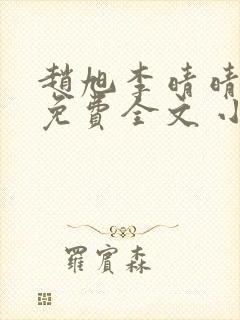 趙旭李晴晴
免費全文小
羅賓森